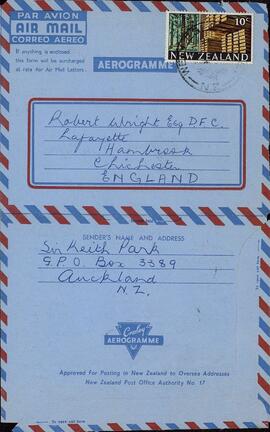 PAR AVION
AIR MAIL
CORREO AEREO
If anything is enclosed
this form will be surcharged
at rate for Air Mail Letters.
AEROGRAMME
10c
NEW ZEALAND
N.Z.
Robert Wright Esq D.F.C.
Lafayette
Hambrook
Chichester
ENGLAND
SENDER'S NAME AND ADDRESS
Sir Keith Park
G.P.O. Box 3389
Auckland
N.Z.
Croxley
AEROGRAMME
Approved for Posting in New Zealand to Overseas Addresses
New Zealand Post Office Authority No. 17
To open cut here